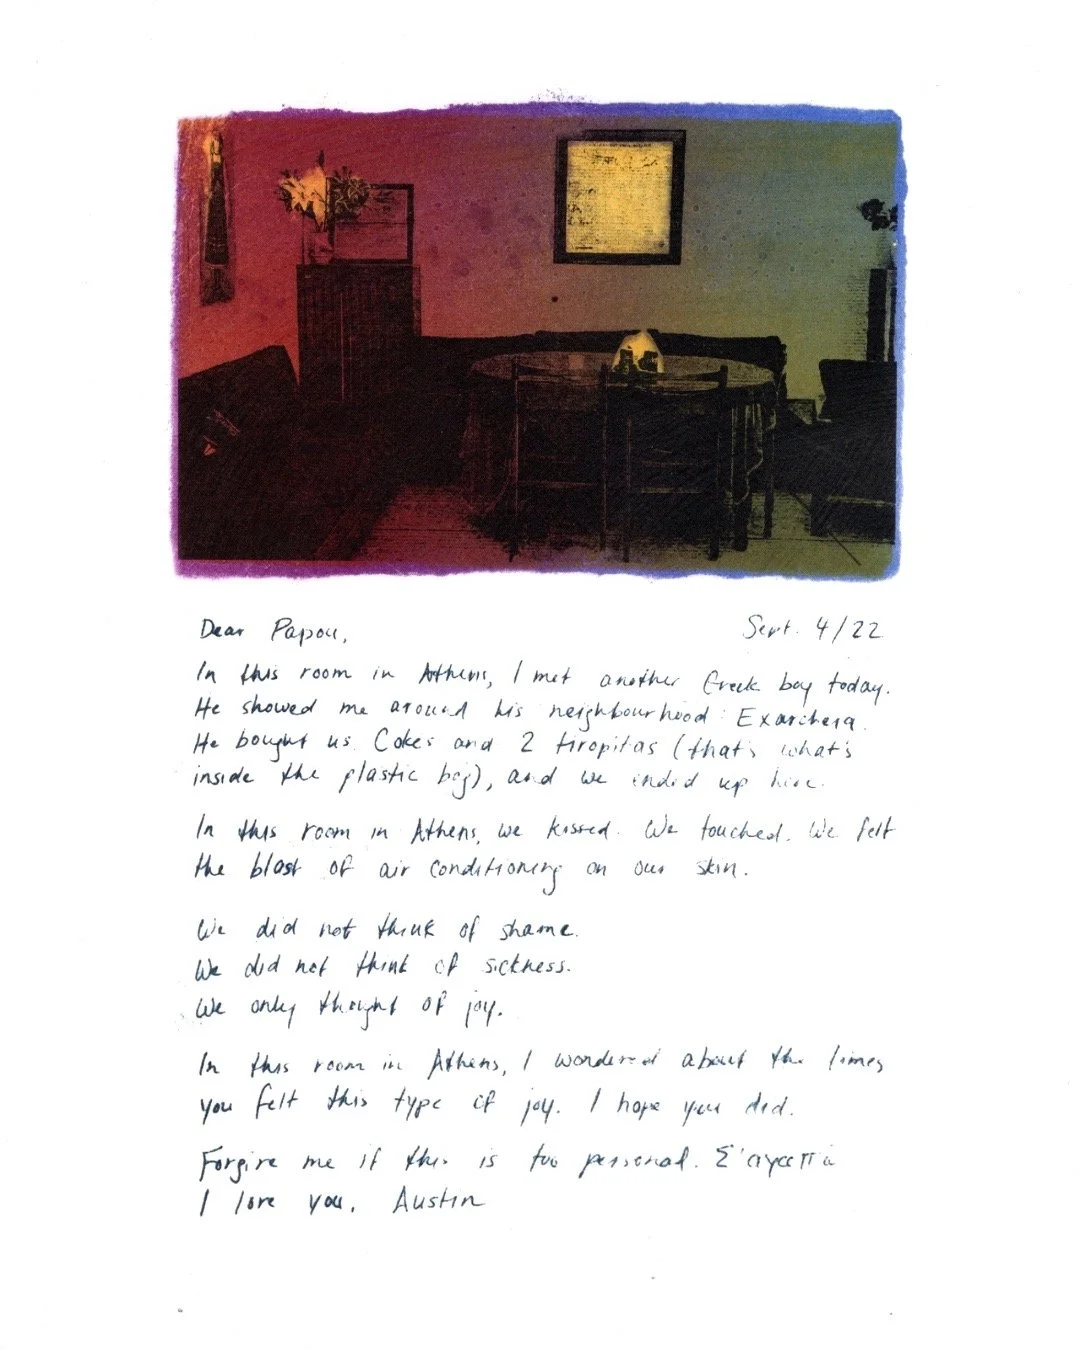 Dear Papou,
Sept. 4/22
In this room in Athens, I met another Greek boy today.
He showed me around his neighbourhood: Exarcheia.
He bought us Cokes and 2 tiropitas (that's what's
inside the plastic bag), and we ended up here.
In this room in Athens, we kissed. We touched. We felt
the blast of air conditioning on our skin.
We did not think of shame.
We did not think of sickness.
We only thought of joy.
In this room in Athens, I wondered about the times
you felt this type of joy. I hope you did.
Forgive me if this is too personal. Σ'αγαπώ
I love you. Austin